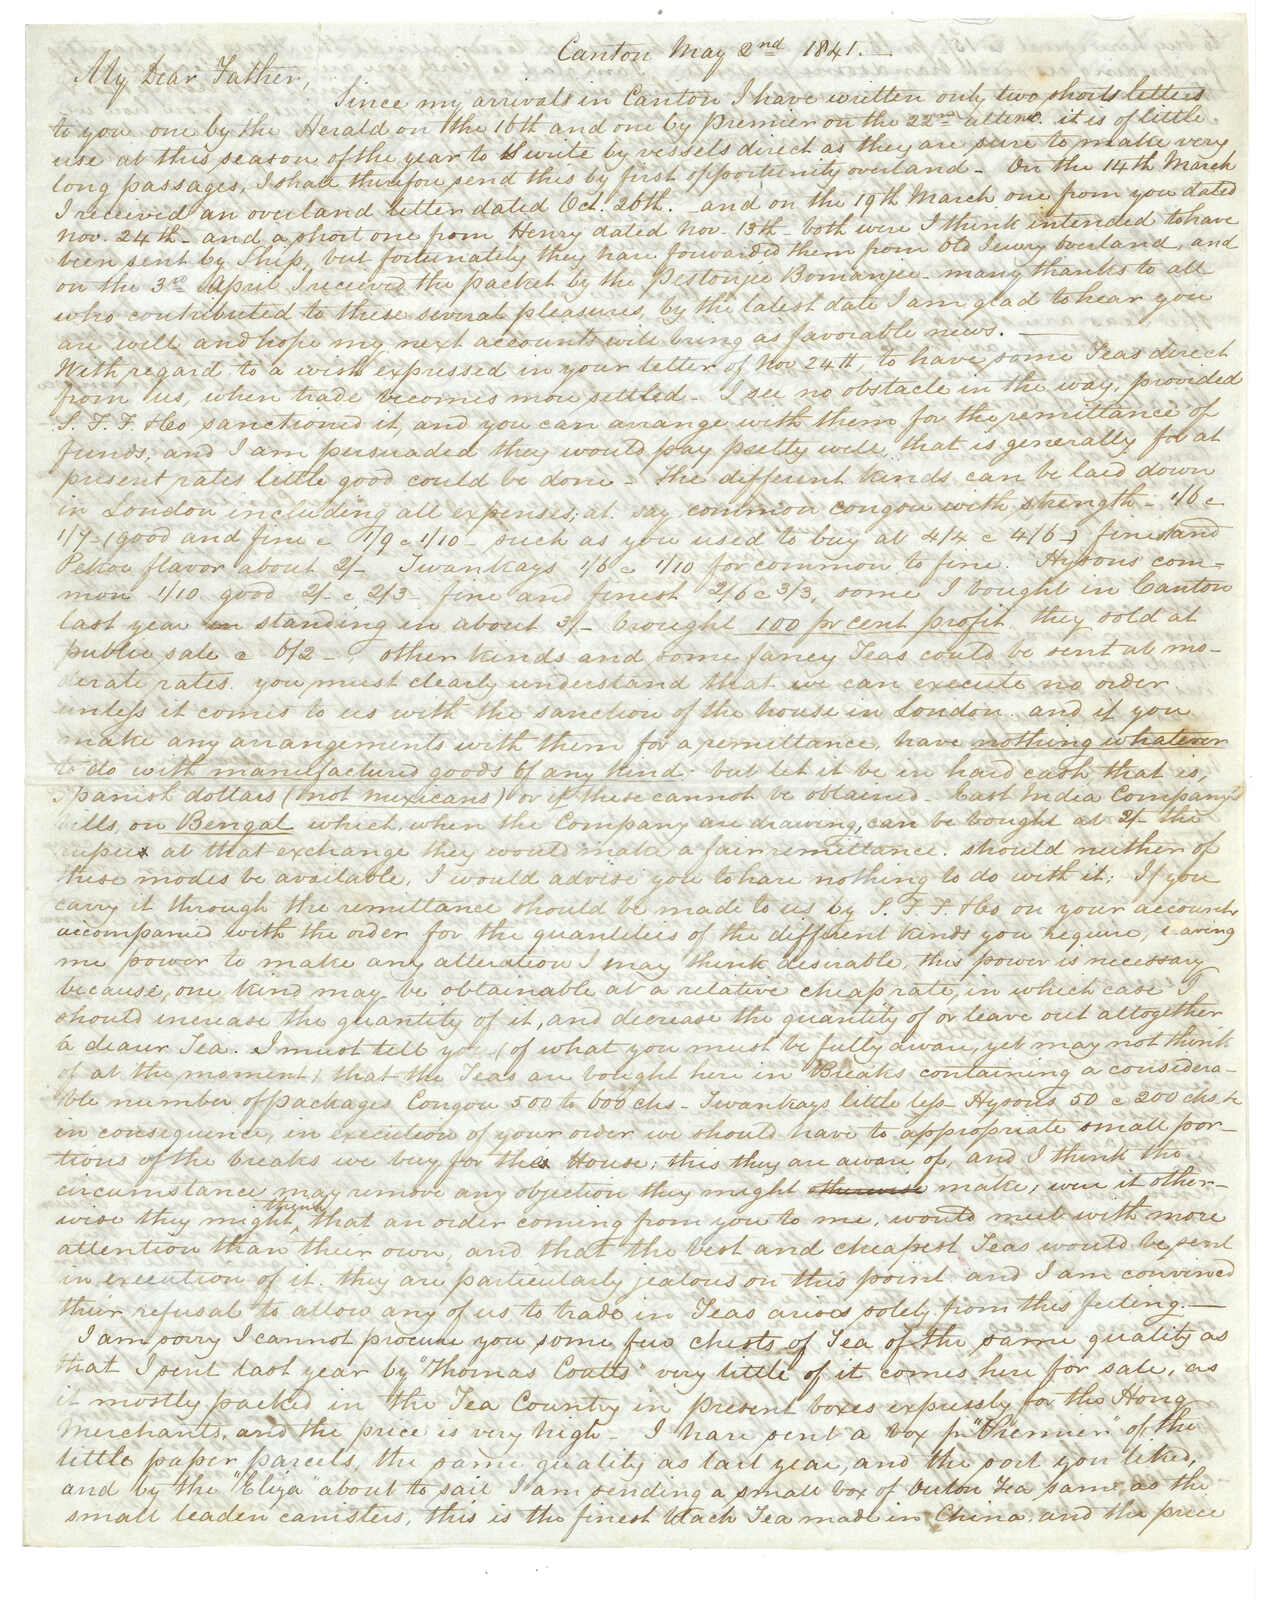 Canton May 2nd 1841.—
My Dear Father,
Since my arrivals in Canton I have written only two short letters
to you one by the Herald on the 16th and one by Premier on the 22nd it is of little
use at this season of the year to write by vessels direct as they are sure to make very
long passages, I shall therefore send this by first opportunity overland – On the 14th March
I received an overland letter dated Oct. 26th. – and on the 19th March one from you dated
Nov. 24th – and a short one from Henry dated Nov. 13th – both were I think intended to have
been sent by Ship, but fortunately they have forwarded them from Old Jewry overland, and
on the 3rd April I received the packet by the Pestonjee Bomanjee – many thanks to all
who contributed to these several pleasures, by the latest date I am glad to hear you
are well and hope my next accounts will bring as favorable news. —
With regard to a wish expressed in your letter of Nov 24th, to have some Teas direct
from us, when trade becomes more settled – I see no obstacle in the way, provided
S. F. F. & Co sanctioned it, and you can arrange with them for the remittance of
funds, and I am persuaded they would pay pretty well, that is generally, for at
present rates little good could be done – The different kinds can be laid down
in London including all expenses, at say common congou with strength – 1/6 @
1/7 – (good and fine @ 1/9 @ 1/10 – such as you used to buy at 4/4 @ 4/6 –) finest and
Pekoe flavor about 2/– Twankays 1/6 @ 1/10 for common to fine. Hysons com–
mon 1/10 good 2/– @ 2/3 – fine and finest 2/6 @ 3/3, some I bought in Canton
last year standing in about 3/– brought 100 pr cent profit. they sold at
public sale @ 6/2 – , other kinds and some fancy Teas could be sent at mo–
derate rates. you must clearly understand that we can execute no order
unless it comes to us with the sanction of the house in London. and if you
make any arrangements with them for a remittance, have nothing whatever
to do with manufactured goods of any kind. but let it be in hard cash that is,
Spanish dollars (not Mexicans) or if these cannot be obtained – East India Company's
bills, on Bengal which, when the Company are drawing, can be bought at 2/– the
rupee at that exchange they would make a fair remittance. should neither of
these modes be available, I would advise you to have nothing to do with it; If you
carry it through the remittance should be made to us by S. F. F. & Co on your account
accompanied with the order for the quantities of the different kinds you require, leaving
me power to make any alteration I may think desirable, this power is necessary
because, one kind may be obtainable at a relative cheap rate, in which case I
should increase the quantity of it, and decrease the quantity of or leave out altogether
a dearer Tea. I must tell you (of what you must be fully aware, yet may not think
of at the moment) that the Teas are bought here in Breaks containing a considera–
ble number of packages Congou 500 to 600 chs – Twankays little less – Hysons 50 @ 200 chs &
in consequence, in execution of your order we should have to appropriate small por–
tions of the breaks we buy for the House; this they are aware of, and I think the
circumstance may remove any objection they might otherwise make; were it other–
wise they might think, that an order coming from you to me, would meet with more
attention than their own, and that the best and cheapest Teas would be sent
in execution of it. they are particularly jealous on this point and I am convinced
their refusal to allow any of us to trade in Teas arises solely from this feeling. —
I am sorry I cannot procure you some few chests of Tea of the same quality as
that I sent last year by "Thomas Coutts" very little of it comes here for sale, as
it mostly packed in the Tea Country in present boxes expressly for the Hong
Merchants, and the price is very high – I have sent a box pr "Premier" of the
little paper parcels, the same quality as last year, and the sort you liked,
and by the "Eliza" about to sail I am sending a small box of Tea same as the
small leaden canisters, this is the finest Black Tea made in China. and the price